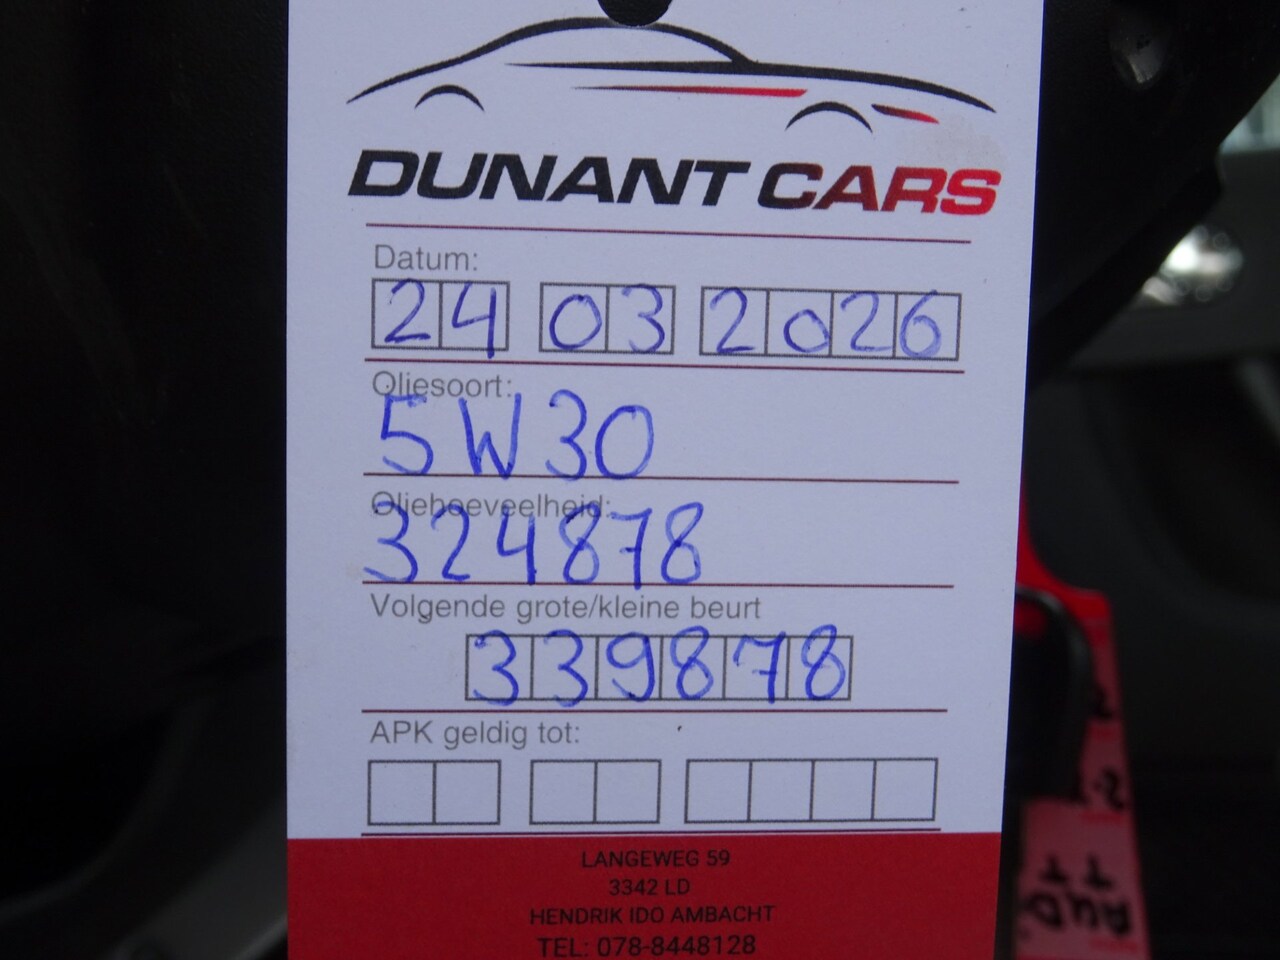 DUNANT CARS
Datum:
24 03 2026
Oliesoort:
5W30
Oliehoeveelheid:
324878
Volgende grote/kleine beurt
339878
APK geldig tot:
LANGEWEG 59
3342 LD
HENDRIK IDO AMBACHT
TEL: 078-8448128
AUD
TT